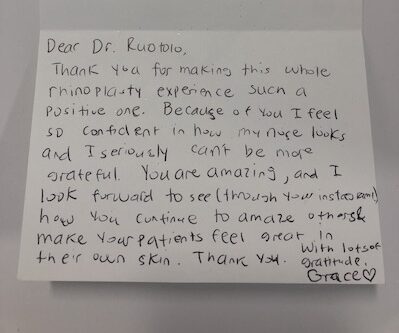 Dear Dr. Ruotolo,
Thank you for making this whole
rhinoplasty experience such a
positive one. Because of you I feel
so confident in how my nose looks
and I seriously can't be more
grateful. You are amazing, and I
look forward to see (through your instagram)
how you continue to amaze others &
make your patients feel great in
their own skin. Thank you.
With lots of
gratitude.
Grace♡